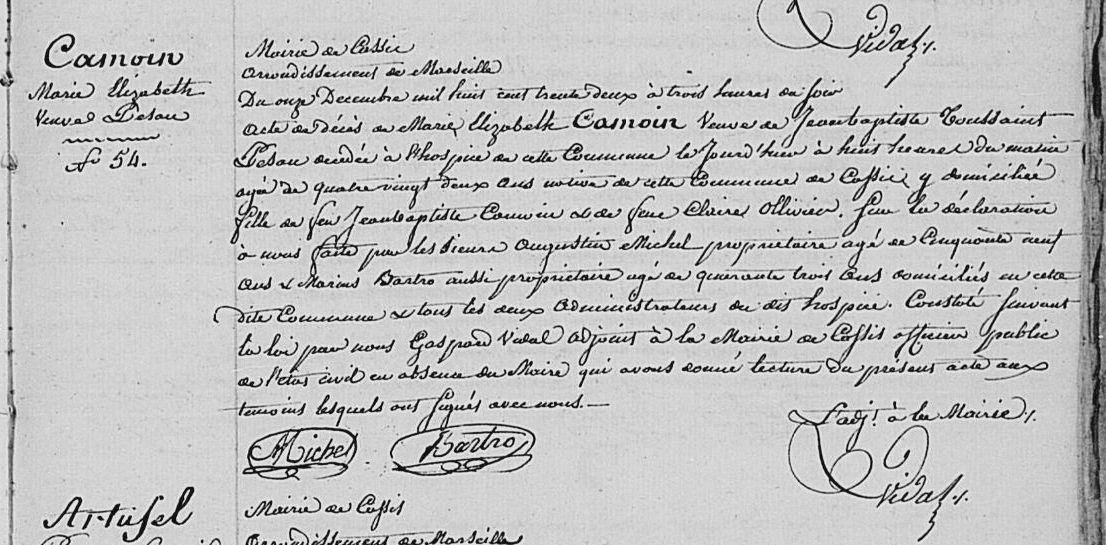 Vidal
Camoin
Marie Elizabeth
Veuve Pesou
f° 54.
Mairie de Cassis
Arrondissement de Marseille
Du onze Decembre mil huit cent trente deux à trois heures du soir
Acte de décès de Marie Elizabeth Camoin Veuve de Jeanbaptiste Toussaint
Pesou decedée à l'hospice de cette Commune le Jourd'huy à huit heures du matin
agée de quatre vingt deux ans native de cette Commune de Cassis y domiciliée
fille de feu Jeanbaptiste Camoin & de feue Claire Ollivier. Sur la déclaration
à nous faite par les sieurs Augustin Michel propriétaire agé de Cinquante neuf
ans & Marius Bartro aussi propriétaire agé de quarante trois ans domiciliés en cette
dite Commune & tous les deux administrateurs du dit hospice. Constaté suivant
la loi par nous Gaspard Vidal adjoint à la Mairie de Cassis officier public
de l'état civil en absence du Maire qui avons donné lecture du présent acte aux
temoins lesquels ont signés avec nous.—
L'adj.t à la Mairie
Michel Bartro
Vidal
Artufel
Mairie de Cassis
Arrondissement de Marseille